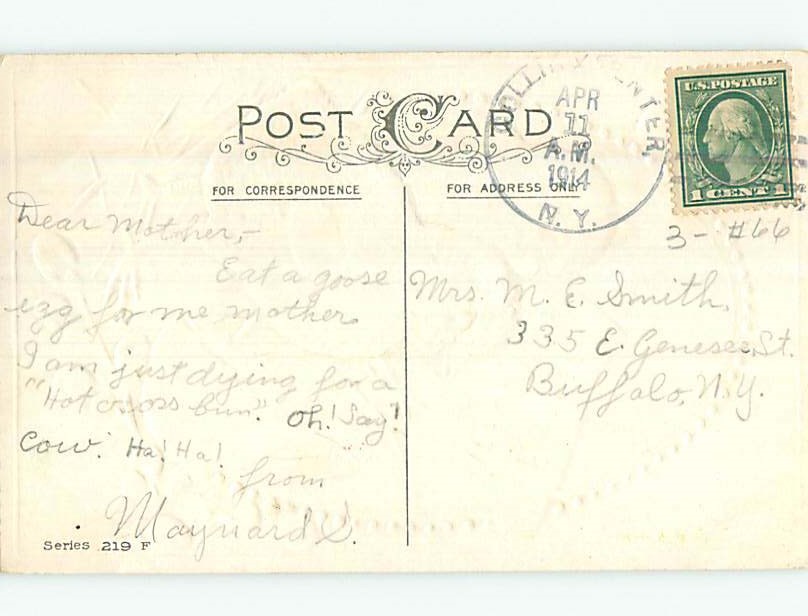 POST CARD
FOR CORRESPONDENCE
FOR ADDRESS ONLY
CENTER,
APR
11
A.M.
1914
N. Y.
U.S. POSTAGE
1 CENT 1
3- #66
Dear Mother,-
Eat a goose
egg for me mother
I am just dying for a
"Hot cross bun". Oh! Say!
Cow! Ha! Ha!
from
Maynard S.
Mrs. M. E. Smith,
335 E. Genesee St.
Buffalo, N.Y.
Series 219 F